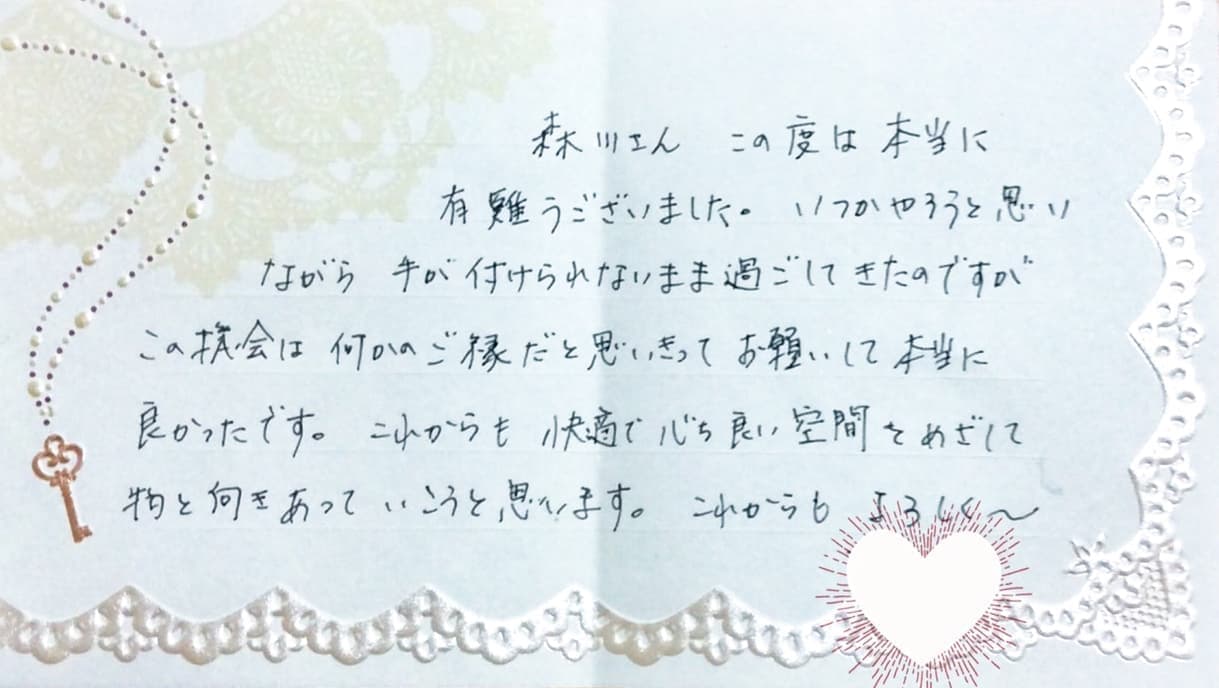 森川さん この度は 本当に
有難うございました。 いつかやろうと思い
ながら 手が付けられないまま過ごしてきたのですが
この機会は 何かのご縁だと思いきって お願いして 本当に
良かったです。 これからも 快適で 心ち良い 空間をめざして
物と向きあって いこうと思います。 これからも よろしく〜